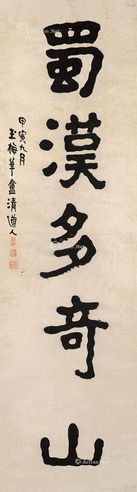 蜀漢多奇山
甲寅九月
玉梅華盦清道人